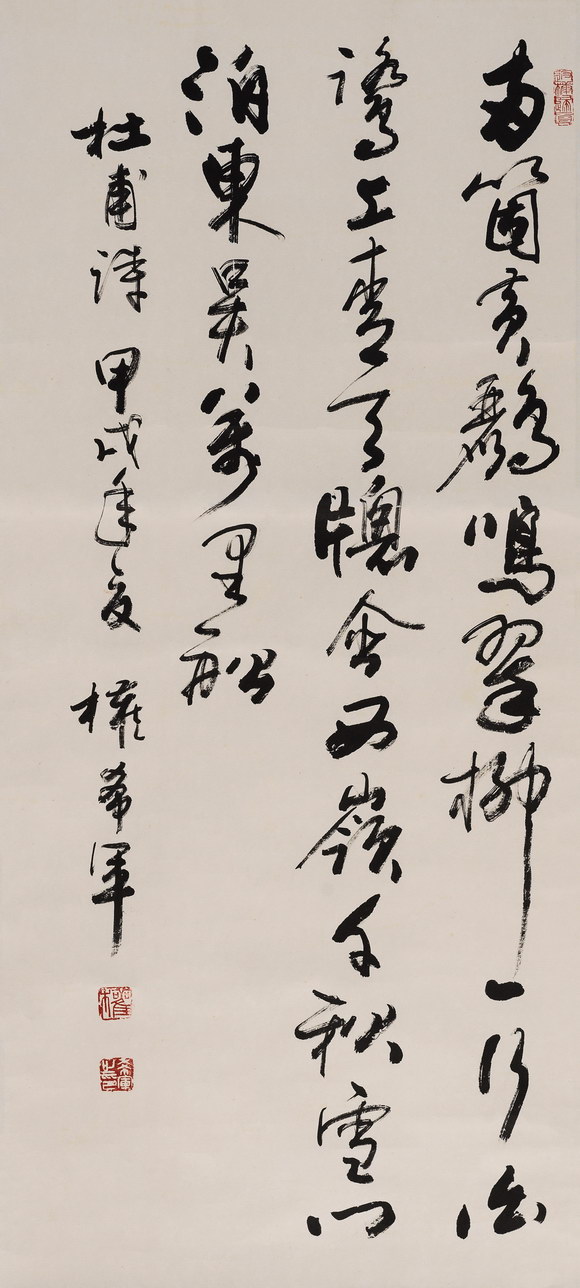 両箇黄鸝鳴翠柳一行白
鷺上青天牕含西嶺千秋雪門
泊東吳萬里船
杜甫詩 甲戌年夏 權希軍